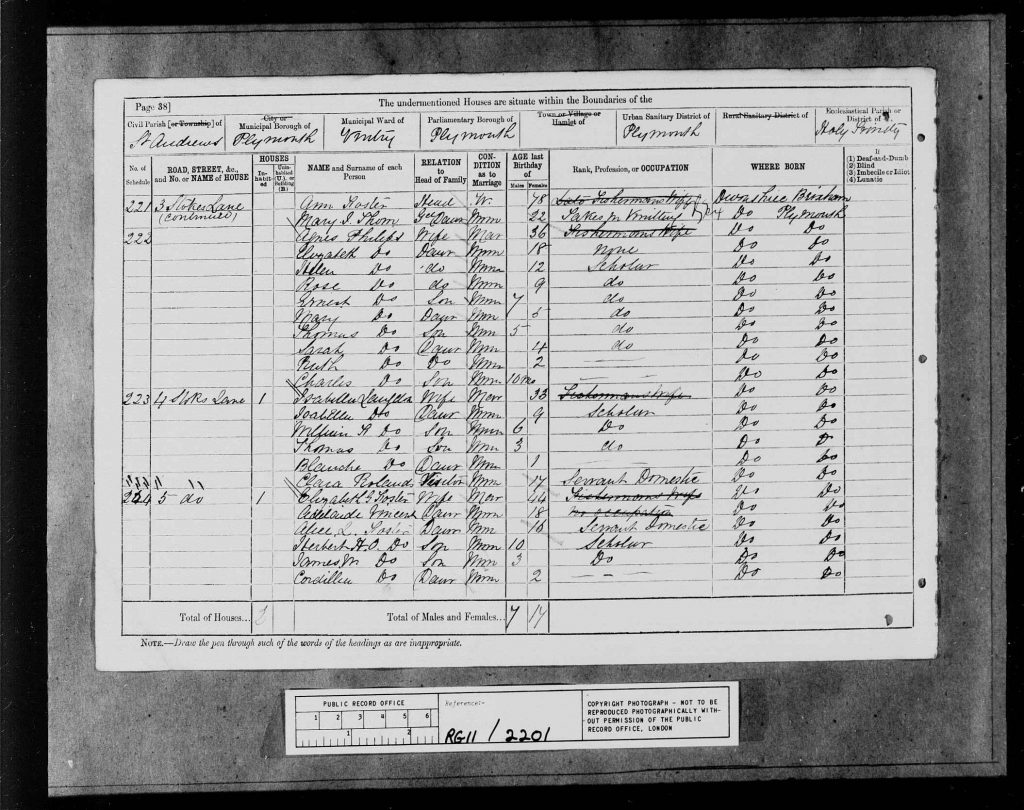 Page 38]
The undermentioned Houses are situate within the Boundaries of the
Civil Parish [or Township] of
St Andrews
City or Municipal Borough of
Plymouth
Municipal Ward of
Parliamentary Borough of
Plymouth
Town or Village or Hamlet of
Urban Sanitary District of
Plymouth
Rural Sanitary District of
Ecclesiastical Parish or District of
Holy Trinity
No. of Schedule
ROAD, STREET, &c., and No. or NAME of HOUSE
HOUSES
Inhabited
Uninhabited (U.), or Building (B.)
NAME and Surname of each Person
RELATION to Head of Family
CONDITION as to Marriage
AGE last Birthday of
Males
Females
Rank, Profession, or OCCUPATION
WHERE BORN
If
(1) Deaf-and-Dumb
(2) Blind
(3) Imbecile or Idiot
(4) Lunatic
221 3 Stokes Lane Ann Foster Head W. 78 Late Fishermans Wife Devonshire Brixham
(continued) Mary J. Thorn Daur Unm 22 Do Plymouth
222 Agnes Philips Wife Mar 36 Fishermans Wife Do Do
Elizabeth Do Daur Unm 18 None Do Do
Hellen Do do Unm 12 Scholar Do Do
Rose Do do Unm 9 do Do Do
Ernest Do Son Unm 7 do Do Do
Mary Do Daur Unm 5 do Do Do
Thomas Do Son Unm 5 do Do Do
Sarah Do Daur Unm 4 do Do Do
Ruth Do Do Unm 2 — — Do Do
Charles Do Son Unm 10 mo — — Do Do
223 4 Stoks Lane 1 Isabella Wife Mar 33 Fishermans Wife Do Do
Isabella Do Daur Unm 9 Scholar Do Do
William H Do Son Unm 6 Do Do Do
Thomas Do Son Unm 3 do Do Do
Blanche Do Daur Unm 1 Do Do
Clara Visitor Unm 17 Servant Domestic Do Do
224 5 do 1 Elizabeth G Foster Wife Mar 44 Fishermans Wife Do Do
Adelaide Vincent Daur Unm 18 no occupation Do Do
Alice L. Foster Daur Unm 16 Servant Domestic Do Do
Herbert H.O. Do Son Unm 10 Scholar Do Do
James W. Do Son Unm 3 Do Do Do
Cordillia Do Daur Unm 2 — — Do Do
Total of Houses... 2
Total of Males and Females... 7 17
NOTE.—Draw the pen through such of the words of the headings as are inappropriate.
PUBLIC RECORD OFFICE
1 2 3 4 5 6
1 2
Reference:-
RG11 / 2201
COPYRIGHT PHOTOGRAPH - NOT TO BE
REPRODUCED PHOTOGRAPHICALLY WITH-
OUT PERMISSION OF THE PUBLIC
RECORD OFFICE, LONDON